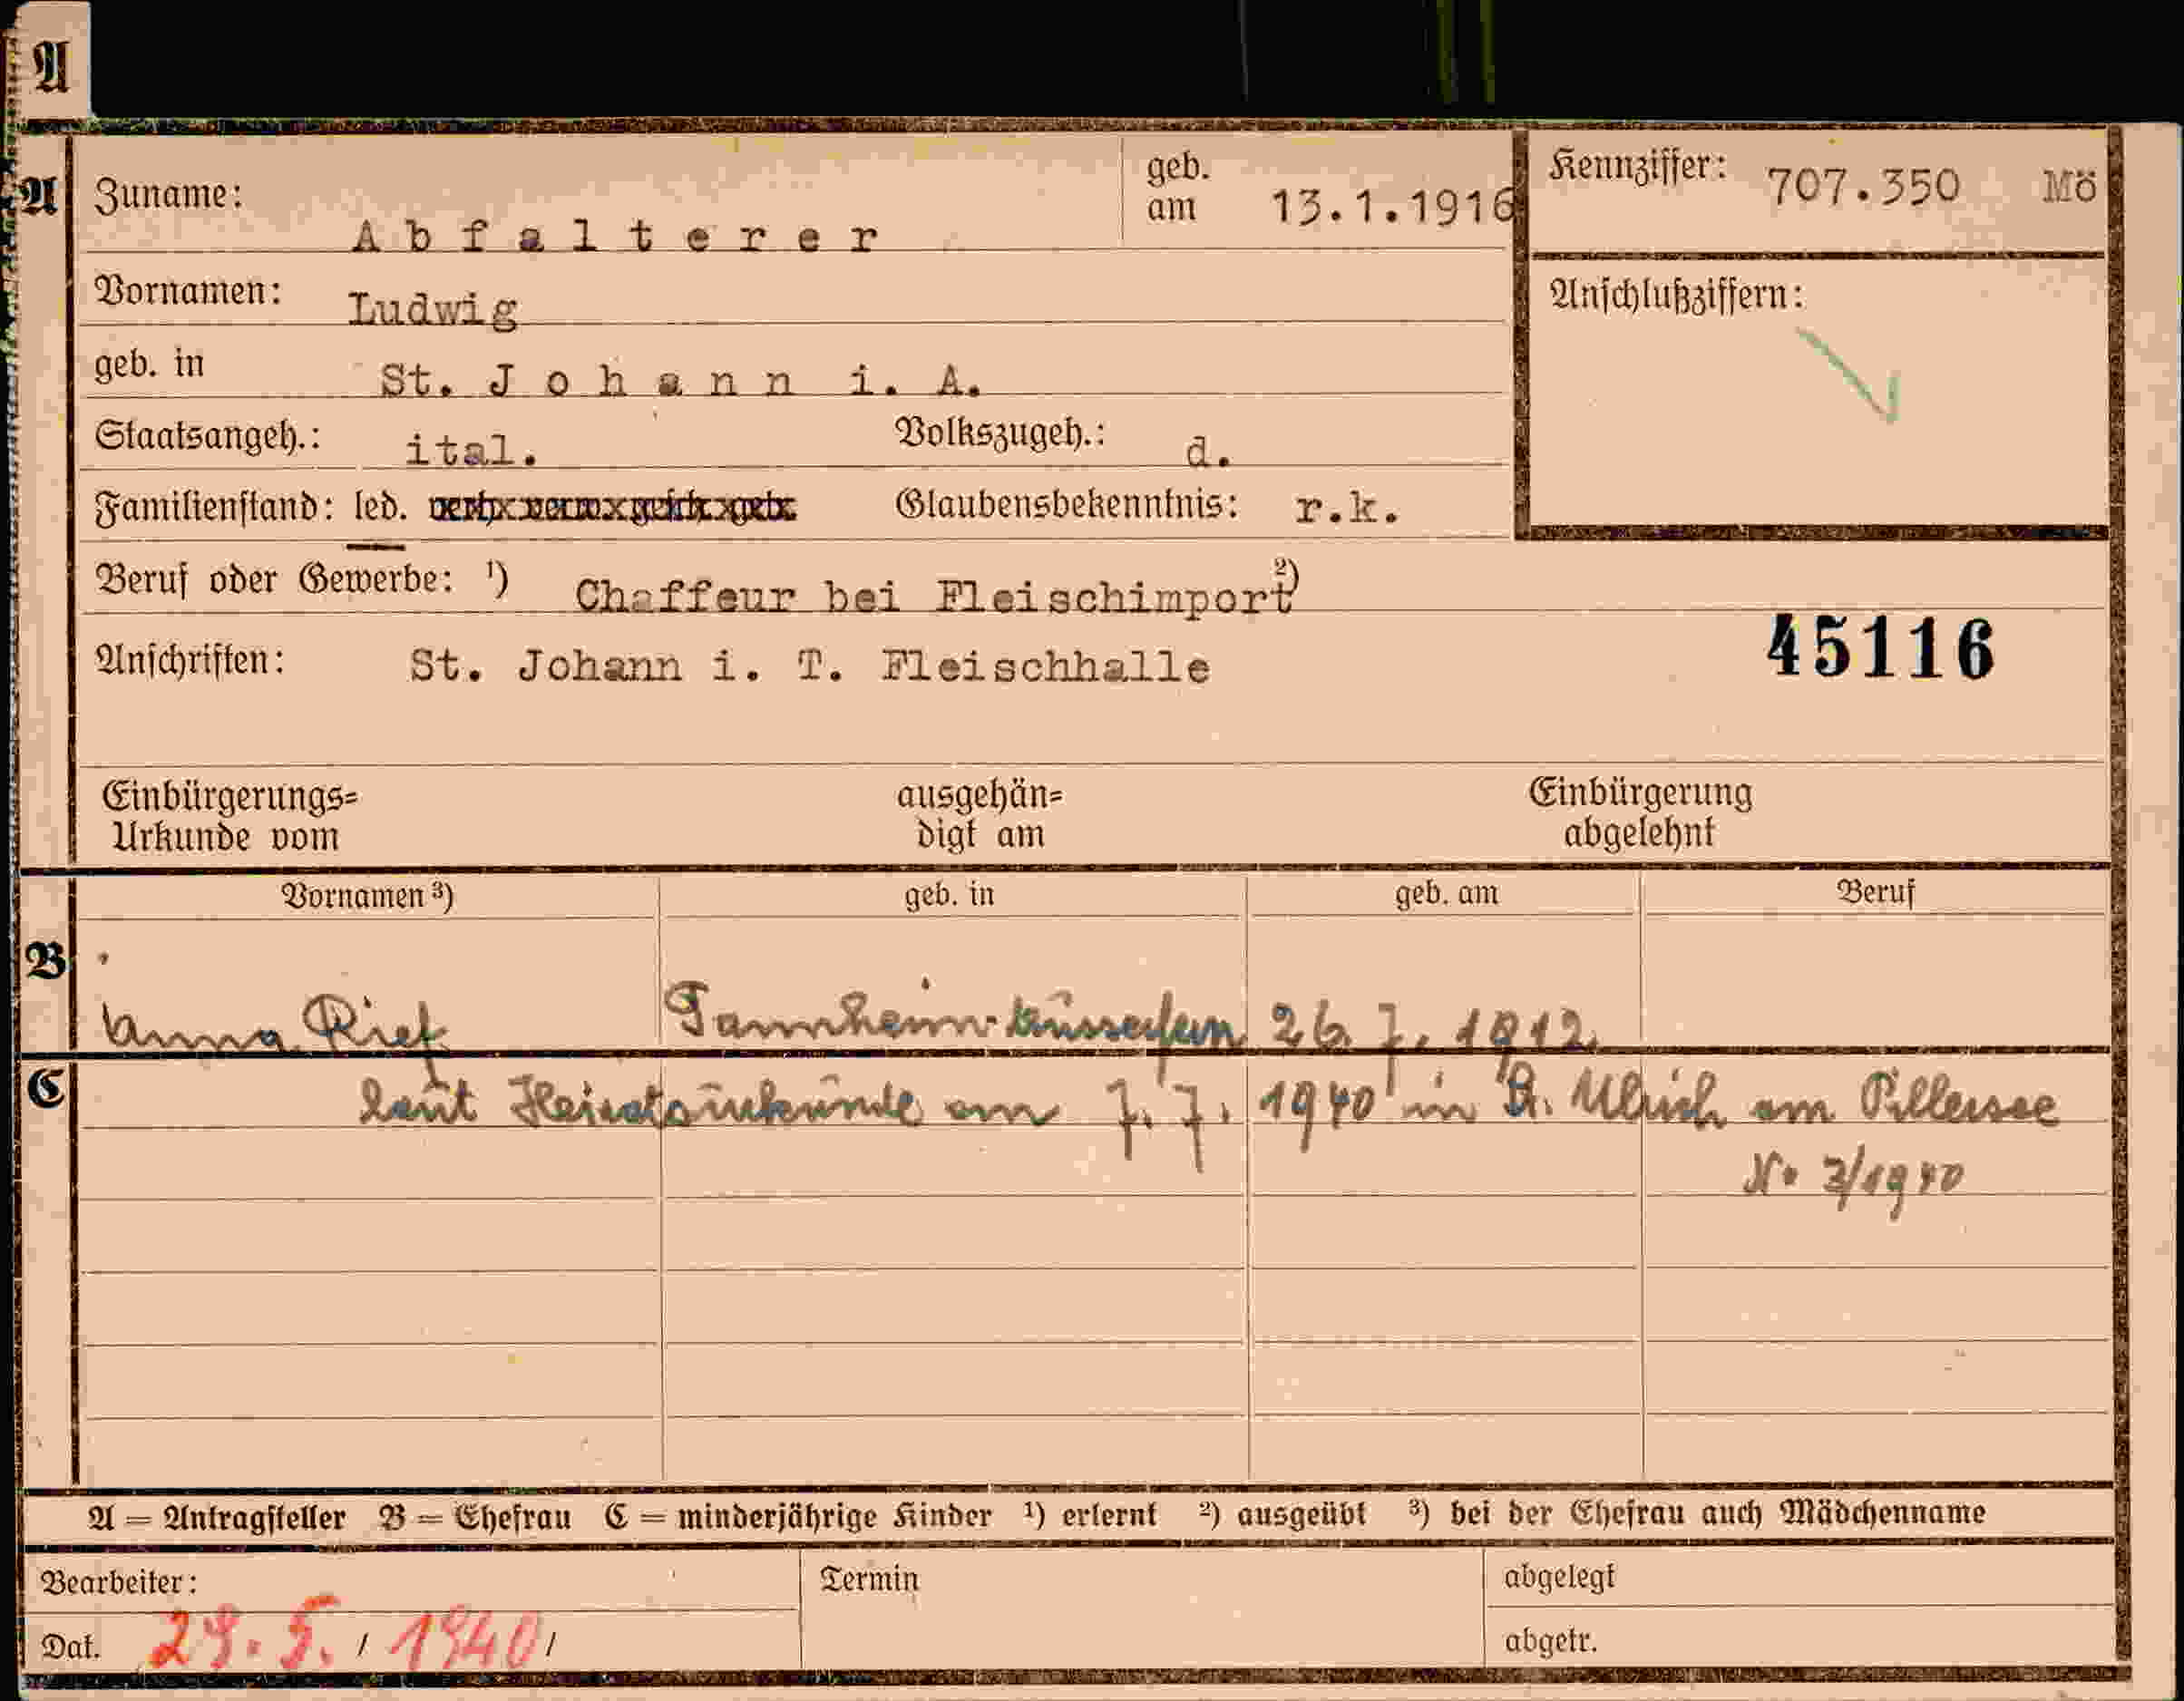 A
A
Zuname: Abfalterer
geb. am 13.1.1916
Kennziffer: 707.350 Mö
Vornamen: Ludwig
Anschlußziffern:
geb. in St. Johann i. A.
Staatsangeh.: ital. Volkszugeh.: d.
Familienstand: led. Glaubensbekenntnis: r.k.
Beruf oder Gewerbe: ¹) Chaffeur bei Fleischimport ²)
45116
Anschriften: St. Johann i. T. Fleischhalle
Einbürgerungs= ausgehän= Einbürgerung
Urkunde vom digt am abgelehnt
Vornamen ³) geb. in geb. am Beruf
B
Anna Rief Tannheim 26.7.1912.
C
laut Heiratsurkunde am 7.7.1940 in St. Ulrich am Pillersee
No 3/1940
A = Antragsteller B = Ehefrau C = minderjährige Kinder ¹) erlernt ²) ausgeübt ³) bei der Ehefrau auch Mädchenname
Bearbeiter: Termin abgelegt
Dat. 29.5. / 1940 / abgetr.